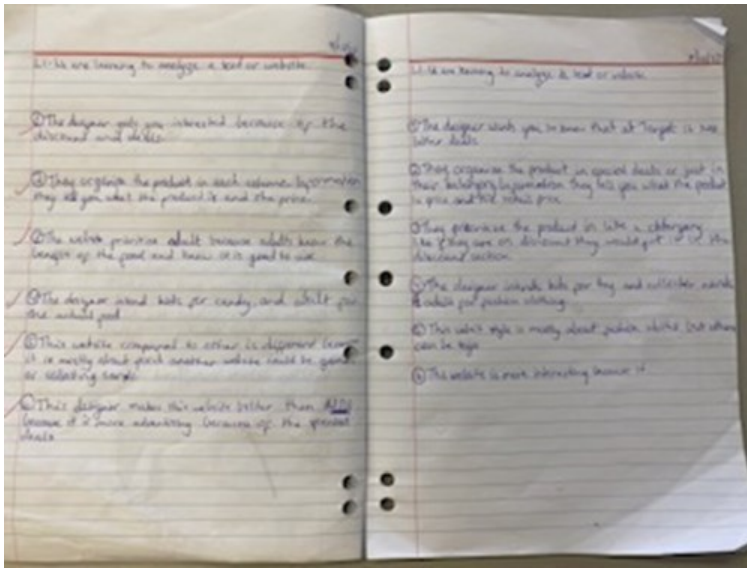 LI: We are learning to analyze a text or website.
① The designer gets you interested because of the
discount and deals.
② They organise the product in each column. Information
they tell you what the product is and the price.
③ The website prioritise adult because adults know the
benefit of the food and know it is good to use
④ The designer intend kids for candy and adult for
the actual food
⑤ This website compared to other is different because
it is mostly about food another website could be games
or
⑥ This designer makes this website better than ALDI
because it is more advertising because of the special
deals
LI: We are learning to analyze a text or website.
① The designer wants you to know that at Target is
deals
② They organise the product in special deals or just in
their category Information they tell you what the product
is price and the retail price.
③ They prioritise the product in like a
like if they are on discount they would put it in the
discount section.
④ The designer intends kids for toy and
adult for fashion clothing.
⑤ This style is mostly about fashion whilst but others
can be toys
⑥ This website is more interesting because it